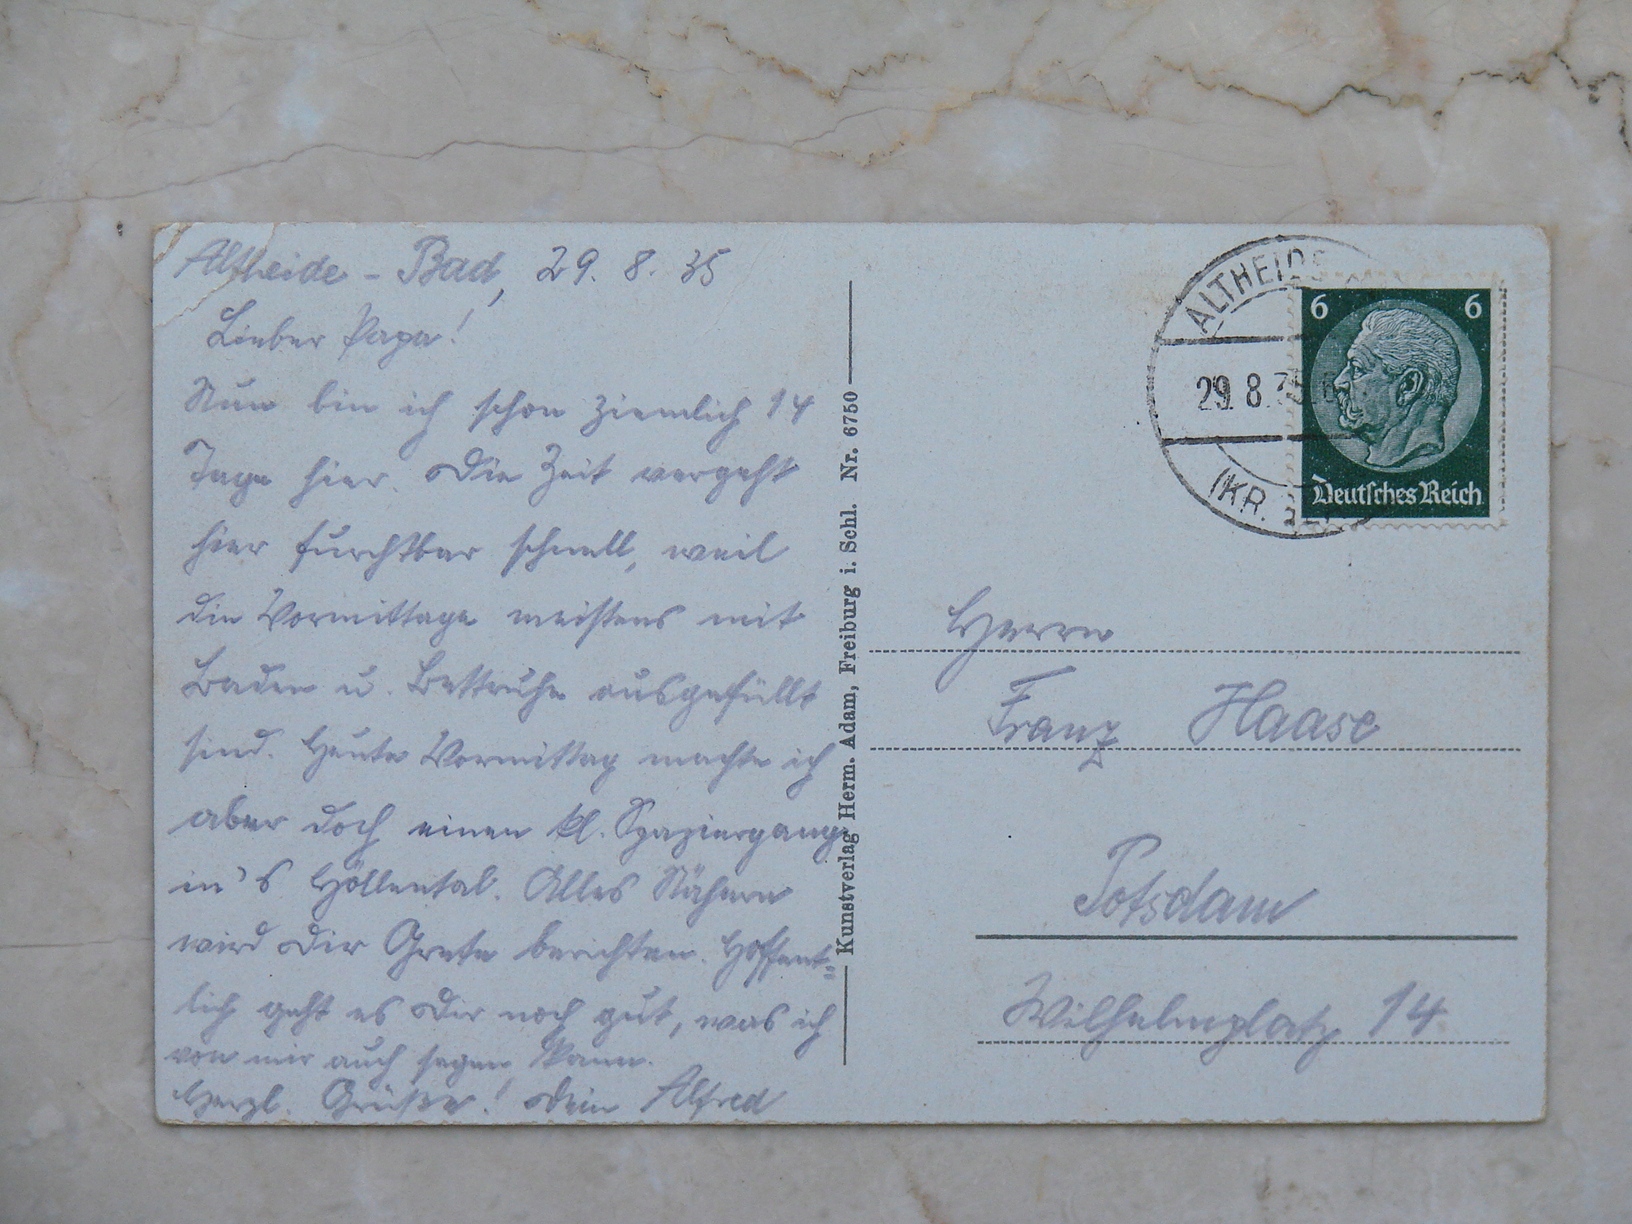 Altheide - Bad, 29. 8. 35
Lieber Papa!
Nun bin ich schon ziemlich 14
Tage hier. Die Zeit vergeht
hier furchtbar schnell, weil
die Vormittage meistens mit
Baden u. Bettruhe ausgefüllt
sind. Heute Vormittag machte ich
aber doch einen kl. Spaziergang
in's Höllental. Alles Nähere
wird Dir Grete berichten. Hoffent=
lich geht es Dir noch gut, was ich
von mir auch sagen kann.
Herzl. Grüße! Dein Alfred
Kunstverlag Herm. Adam, Freiburg i. Schl. Nr. 6750
ALTHEIDE
29.8.35
(KR.
6 6
Deutsches Reich
Herrn
Franz Haase
Potsdam
Wilhelmplatz 14